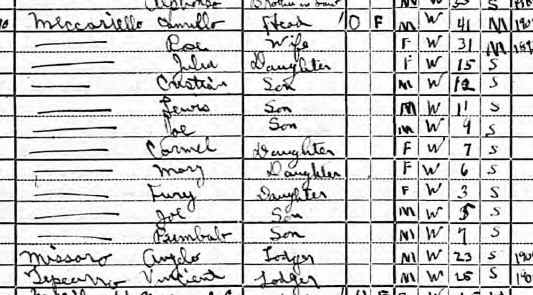 Alphonso Brother in Law M W S
Meccariello Camillo Head O F M W 41 M
Rose Wife F W 31 M
Julia Daughter F W 15 S
Cristian Son M W 12 S
Lewis Son M W 11 S
Joe Son M W 9 S
Carmel Daughter F W 7 S
Mary Daughter F W 6 S
Fury Daughter F W 3 S
Joe Son M W 5 S
Son M W 7 S
Missaro Angelo Lodger M W 23 S
Vincient Lodger M W 25 S